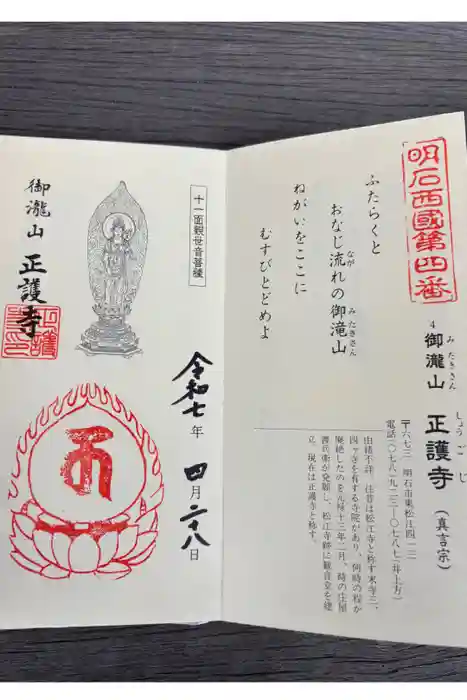 明石西國第四番
4 御瀧山 正護寺 (真言宗)
みたきさん しょうごじ
〒六七三 明石市東松江四一二
電話(〇七八)九二三―〇七八七(井上方)
由緒不詳、往昔は松江寺と称す末寺三、
四ヶ寺を有する寺院があり、何時の程か
廃絶したのを元禄十三年二月、時の庄屋
源兵衛が発願し、松江寺跡に観音堂を建
立、現在は正護寺と称す。
ふたらくと
おなじ流れの御滝山
なが みたきさん
ねがいをここに
むすびとどめよ
十一面観世音菩薩
御瀧山 正護寺
令和七年 四月二十八日